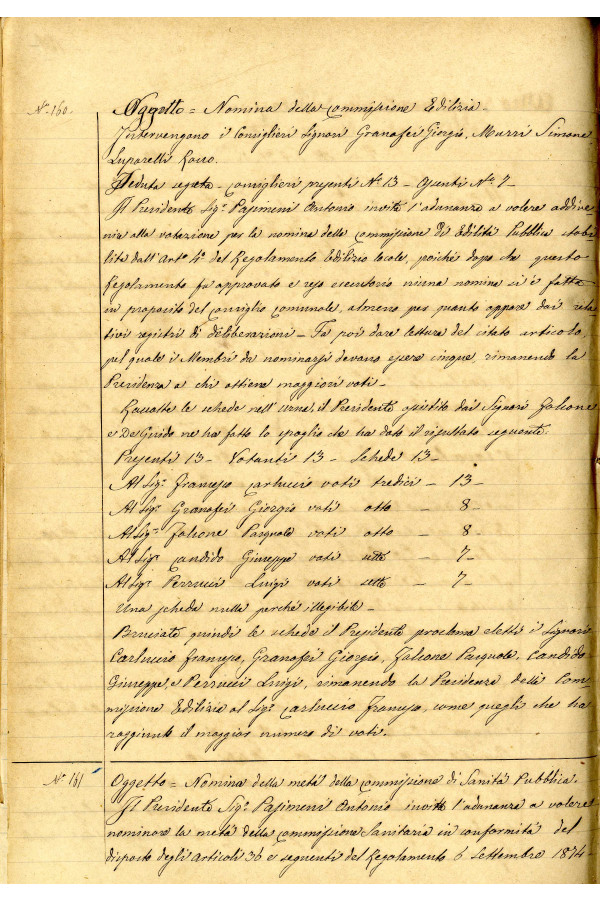 N.º 160.
Oggetto = Nomina della Commissione Edilizia.
Intervengono i Consiglieri Signori Granafei Giorgio, Murri Simone
Luparelli Rocco.
Seduta segreta – Consiglieri presenti N.º 13 – Assenti N.º 7 –
Il Presidente Sig.r Pasimeni Antonio invita l'adunanza a volere addive
nire alla votazione per la nomina della Commissione di Edilità Pubblica stabi
lita dall'Art.º 4º del Regolamento Edilizio locale, poichè dopo che questo
Regolamento fu approvato e reso esecutorio niuna nomina si è fatta
in proposito dal Consiglio Comunale, almeno per quanto appare dai rela
tivi registri di deliberazioni – Fa poi dare lettura del citato articolo,
pel quale i Membri da nominarsi devono essere cinque, rimanendo la
Presidenza a chi ottiene maggiori voti –
Raccolte le schede nell'urna, il Presidente assistito dai Signori Falcone
e De Guido ne ha fatto lo spoglio che ha dato il risultato seguente.
Presenti 13 – Votanti 13 – Schede 13 –
Al Sig.r Francesco Carluccio voti tredici – 13 –
Al Sig.r Granafei Giorgio voti otto – 8 –
Al Sig.r Falcone Pasquale voti otto – 8 –
Al Sig.r Candido Giuseppe voti sette – 7 –
Al Sig.r Perrucci Luigi voti sette – 7 –
Una scheda nulla perchè illegibile –
Bruciate quindi le schede il Presidente proclama eletti i Signori
Carluccio Francesco, Granafei Giorgio, Falcone Pasquale, Candido
Giuseppe, e Perrucci Luigi, rimanendo la Presidenza della Com
missione Edilizia al Sig.r Carluccio Francesco, come quegli che ha
raggiunto il maggior numero di voti.
N.º 161
Oggetto = Nomina della metà della Commissione di Sanità Pubblica.
Il Presidente Sig.r Pasimeni Antonio invita l'adunanza a volere
nominare la metà della Commissione Sanitaria in conformità del
disposto degli Articoli 36 e seguenti del Regolamento 6 Settembre 1874